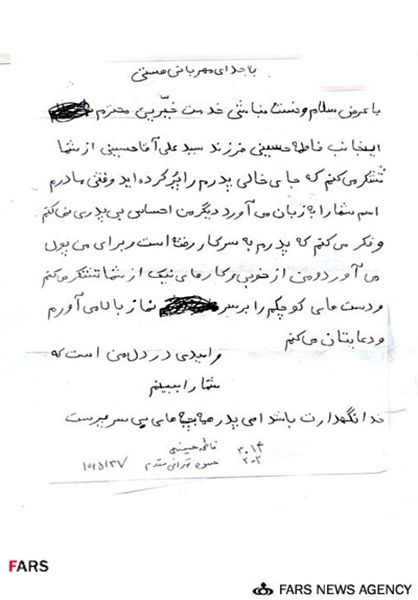 با خدای مهربانی هستی
با عرض سلام و خدمت خدمت خیّرین محترم
اینجانب فاطمه حسینی فرزند سید علی آقا حسینی از شما
تشکر می‌کنم که جای خالی پدرم را پُر کرده اید وقتی مادرم
اسم شما را به زبان می آورد دیگر من احساس بی پدری نمی‌کنم
و فکر می کنم که پدرم به سر کار رفته است و برای می پول
می آورد و من از خوبی و کارهای نیک از شما تشکر می‌کنم
و دست های کوچکم را بر سر نماز بالا می آورم
و دعایتان می‌کنم
و امیدی در دل من است که
شما را ببینم
خدا نگهدارت باشد ای پدر همه بچه های بی سرپرست
فاطمه حسینی
FARS
FARS NEWS AGENCY